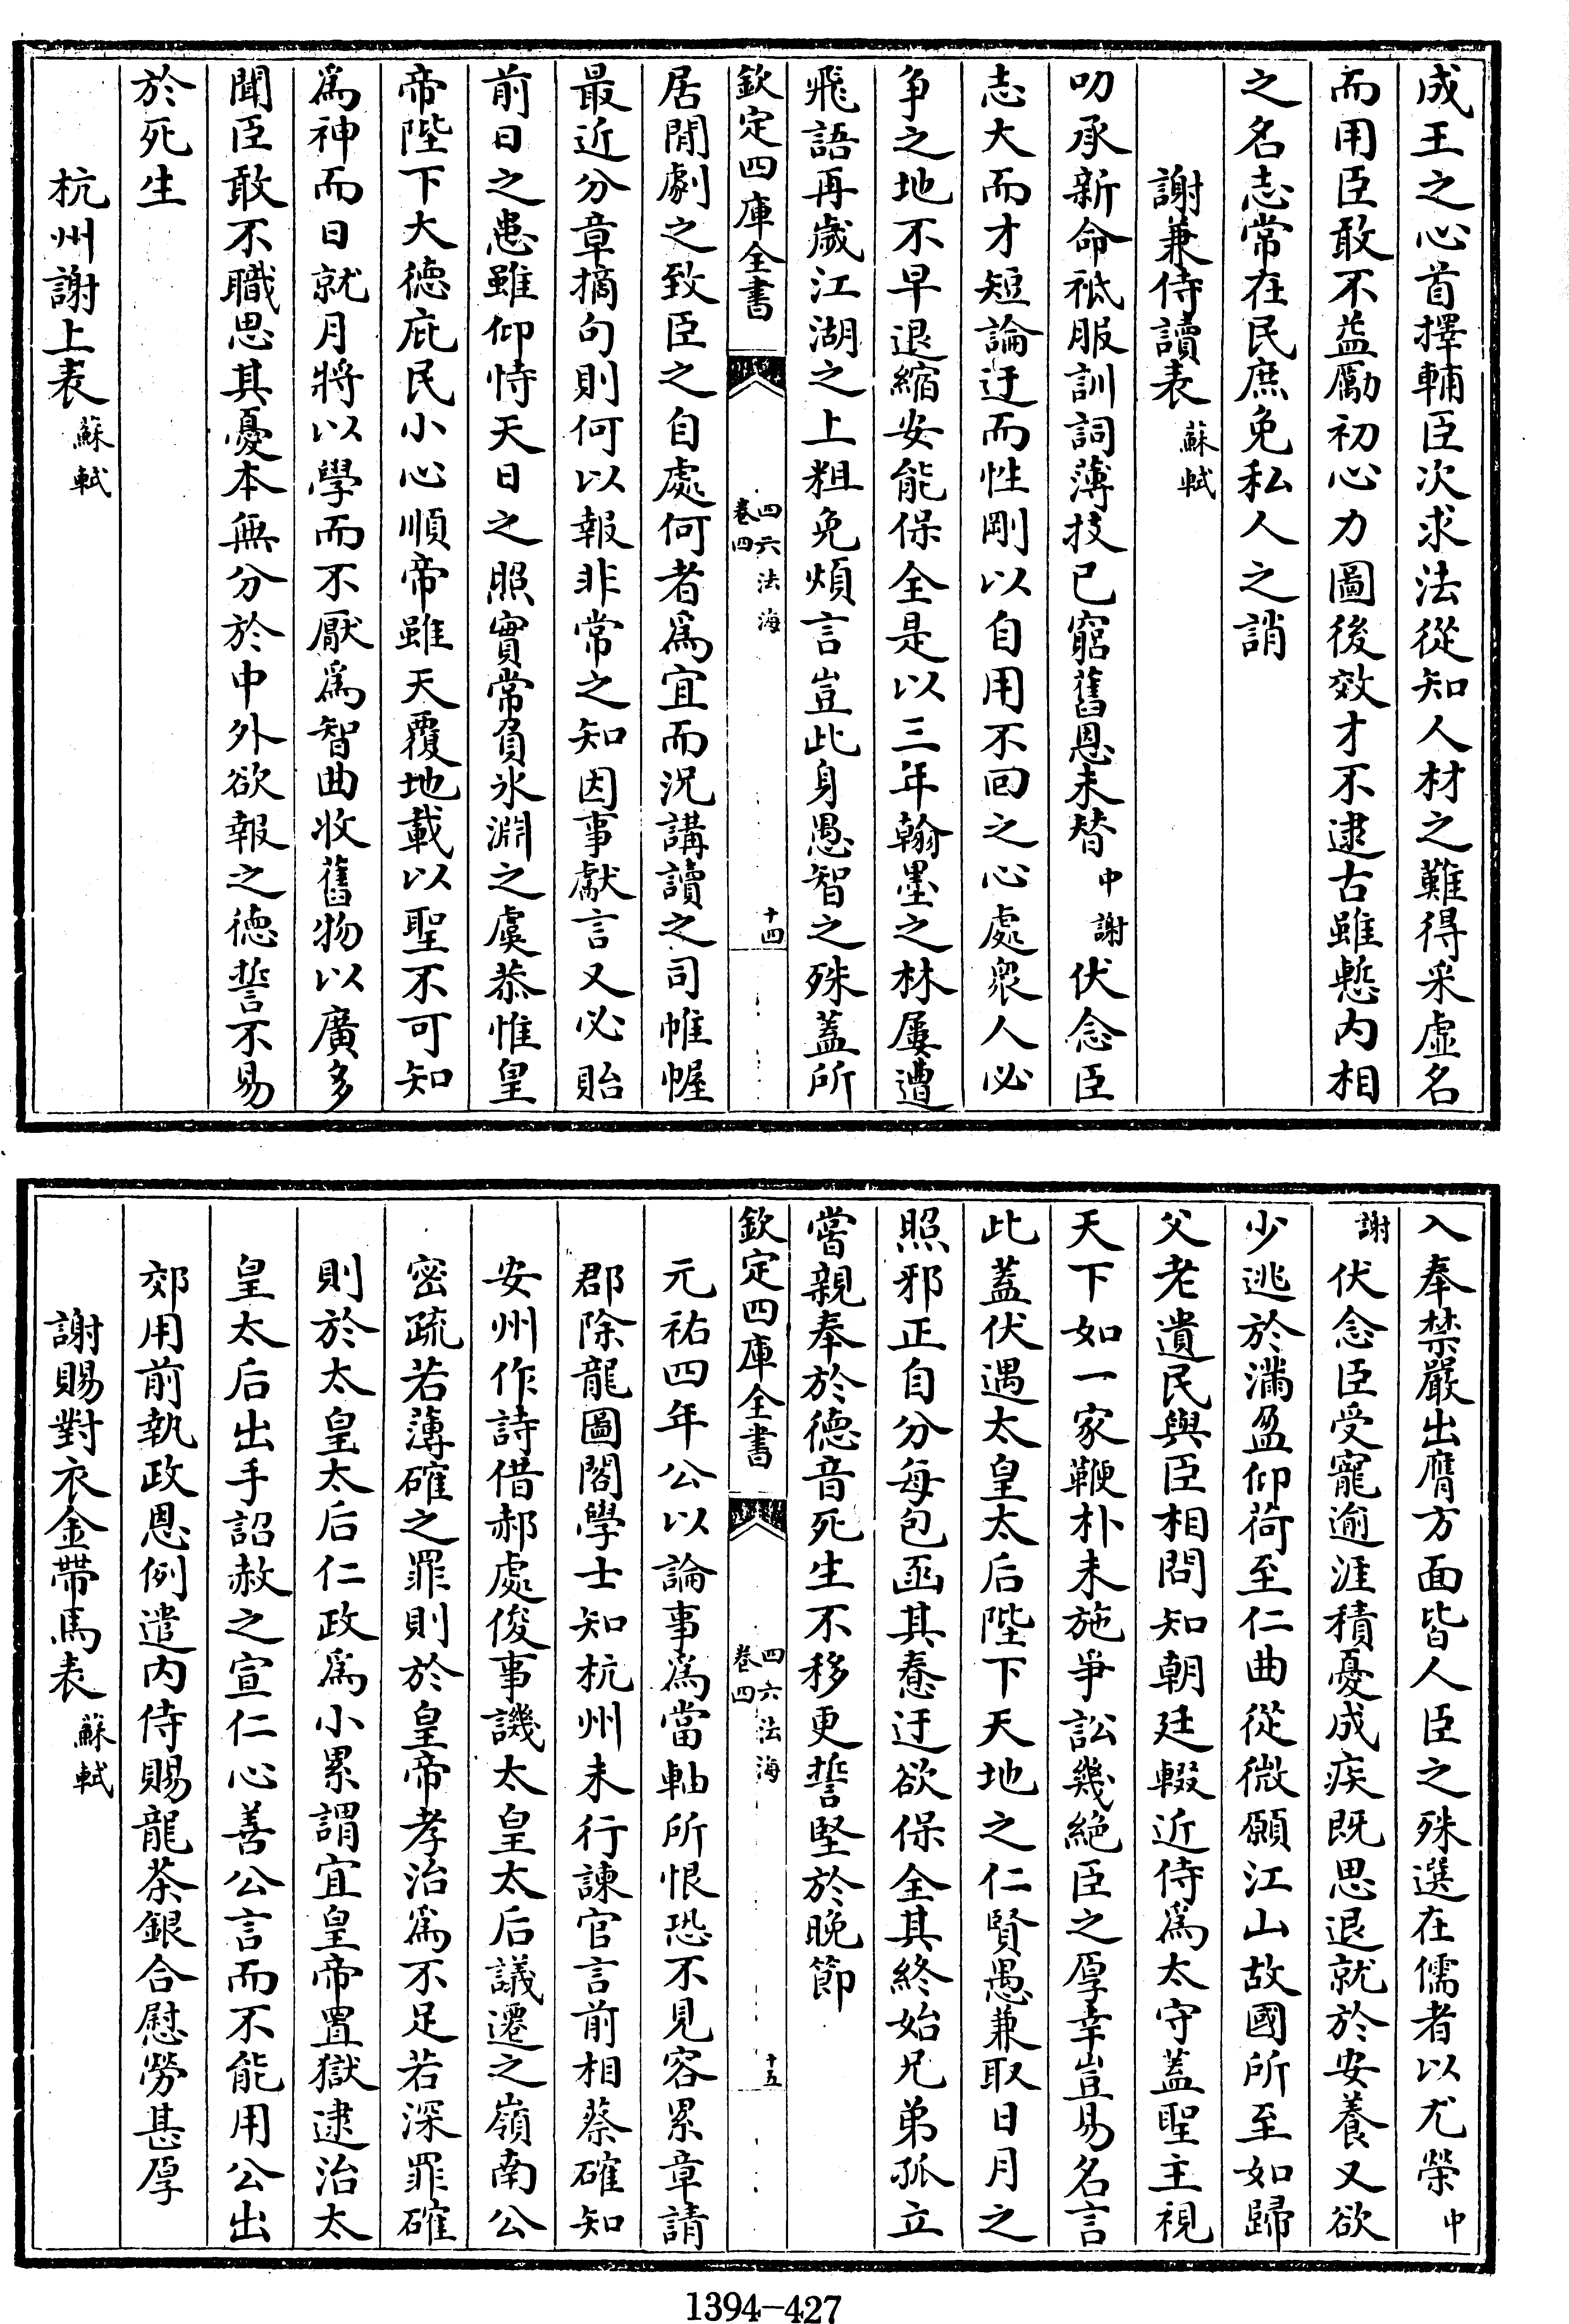 成王之心首擇輔臣次求法從知人材之難得采虛名
而用臣敢不益勵初心力圖後效才不逮古雖慙内相
之名志常在民庶免私人之誚
謝兼侍讀表蘇軾
叨承新命祗服訓詞薄技已窮舊恩未替中謝伏念臣
志大而才短論迂而性剛以自用不回之心處衆人必
争之地不早退縮安能保全是以三年翰墨之林屢遭
飛語再歲江湖之上粗免煩言豈此身愚智之殊蓋所
欽定四庫全書
四六法海
卷四
十四
居閒劇之致臣之自處何者爲宜而況講讀之司帷幄
最近分章摘句則何以報非常之知因事獻言又必貽
前日之患雖仰恃天日之照實常負氷淵之虞恭惟皇
帝陛下大德庇民小心順帝雖天覆地載以聖不可知
爲神而日就月將以學而不厭爲智曲收舊物以廣多
聞臣敢不職思其憂本無分於中外欲報之德誓不易
於死生
杭州謝上表蘇軾
入奉禁嚴出膺方面皆人臣之殊選在儒者以尤榮中
謝伏念臣受寵逾涯積憂成疾既思退就於安養又欲
少逃於滿盈仰荷至仁曲從微願江山故國所至如歸
父老遺民與臣相問知朝廷輟近侍爲太守蓋聖主視
天下如一家鞭朴未施爭訟幾絶臣之厚幸豈易名言
此蓋伏遇太皇太后陛下天地之仁賢愚兼取日月之
照邪正自分每包函其惷迂欲保全其終始兄弟孤立
嘗親奉於德音死生不移更誓堅於晩節
欽定四庫全書
四六法海
卷四
十五
元祐四年公以論事爲當軸所恨恐不見容累章請
郡除龍圖閣學士知杭州未行諫官言前相蔡確知
安州作詩借郝處俊事譏太皇太后議遷之嶺南公
密疏若薄確之罪則於皇帝孝治爲不足若深罪確
則於太皇太后仁政爲小累謂宜皇帝置獄逮治太
皇太后出手詔赦之宣仁心善公言而不能用公出
郊用前執政恩例遣内侍賜龍茶銀合慰勞甚厚
謝賜對衣金帶馬表蘇軾
1394-427